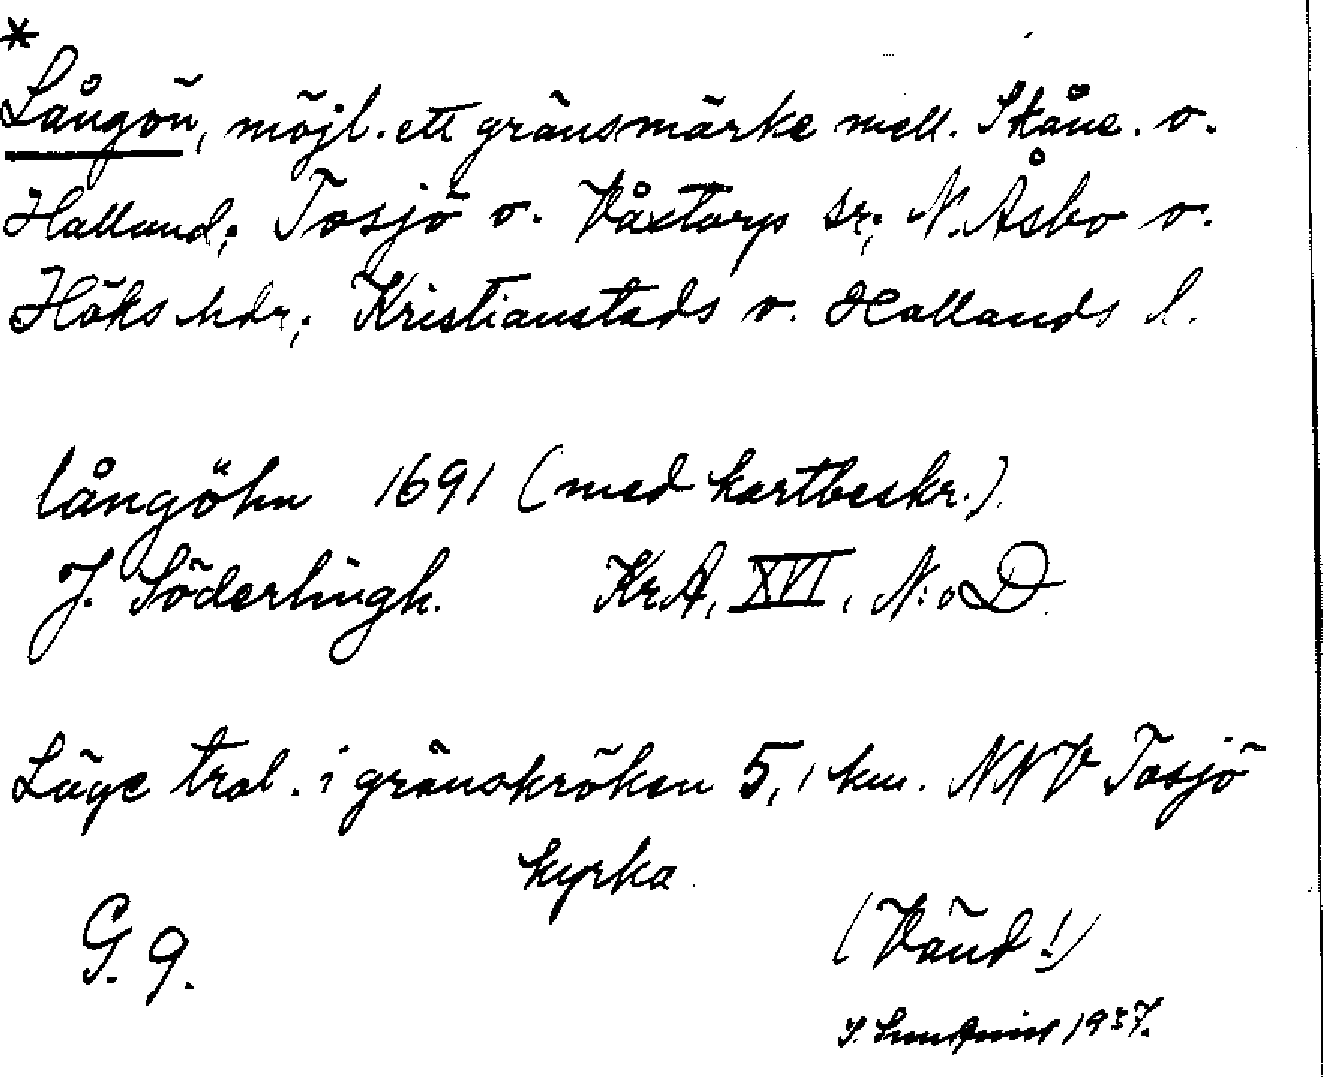 *
Långön, möjl. ett gränsmärke mell. Skåne. o.
Halland; Tosjö o. Våxtorps sr; N. Åsbo o.
Höks hdr; Kristianstads o. Hallands l.
långöhn 1691 (med kartbeskr.).
J. Söderlingh. KrA, XVI, N:o D.
Läge trol. i gränskröken 5,1 km. NNV Tosjö
kyrka.
G. 9.
(Vänd!)
1937.